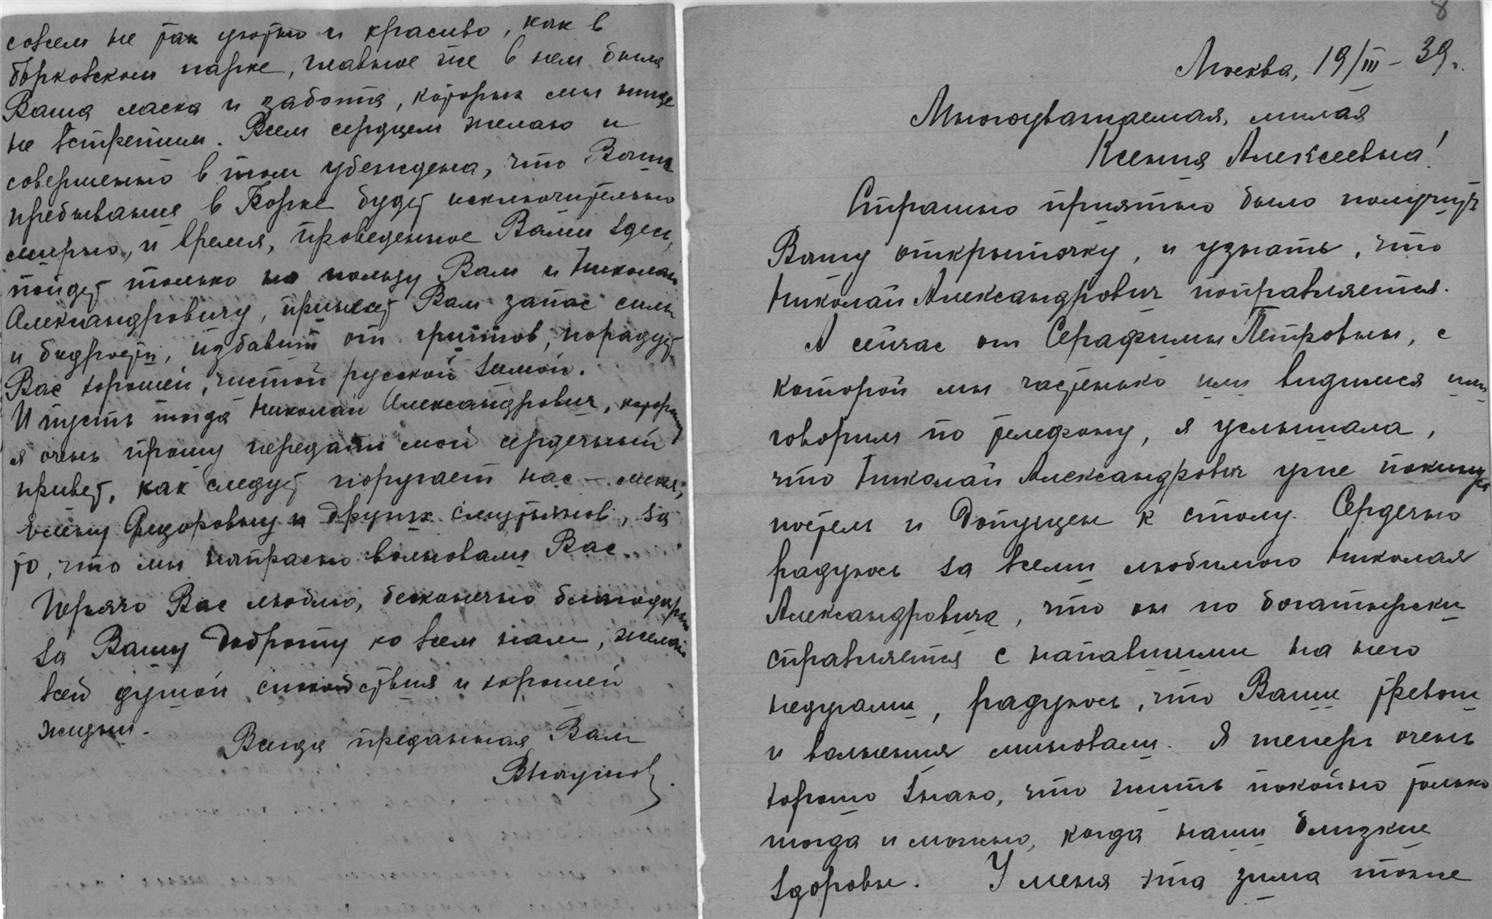 совсем не так уютно и красиво, как в
борковском парке, главное же в нем была
Ваша ласка и забота, которых мы нигде
не встретим. Всем сердцем желаю и
совершенно в том убеждена, что Ваше
пребывание в Борке будет исключительно
мирно, и время, проведенное Вами здесь,
пойдет только на пользу Вам и Николаю
Александровичу, принесет Вам запас силы
и бодрости, избавит от гриппов, порадует
Вас хорошей, чистой русской зимой.
И пусть тогда Николай Александрович, которому
я очень прошу передать мой сердечный
привет, как следует поругает нас – меня,
Фёдоровну и других смутьянов, за
то, что мы напрасно волновали Вас.
Горячо Вас люблю, бесконечно благодарю
за Вашу доброту ко всем нам, желаю
всей душой спокойствия и хорошей
жизни.
Всегда преданная Вам
8
Москва, 19/III – 39.
Многоуважаемая, милая
Ксения Алексеевна!
Страшно приятно было получить
Вашу открыточку, и узнать, что
Николай Александрович поправляется.
А сейчас от Серафимы Петровны, с
которой мы частенько или видимся или
говорим по телефону, я услышала,
что Николай Александрович уже покинул
постель и допущен к столу. Сердечно
радуюсь за всеми любимого Николая
Александровича, что он по богатырски
справляется с напавшими на него
недугами, радуюсь, что Ваши тревоги
и волнения миновали. Я теперь очень
хорошо знаю, что жить покойно только
тогда и можно, когда наши близкие
здоровы. У меня эта зима тоже